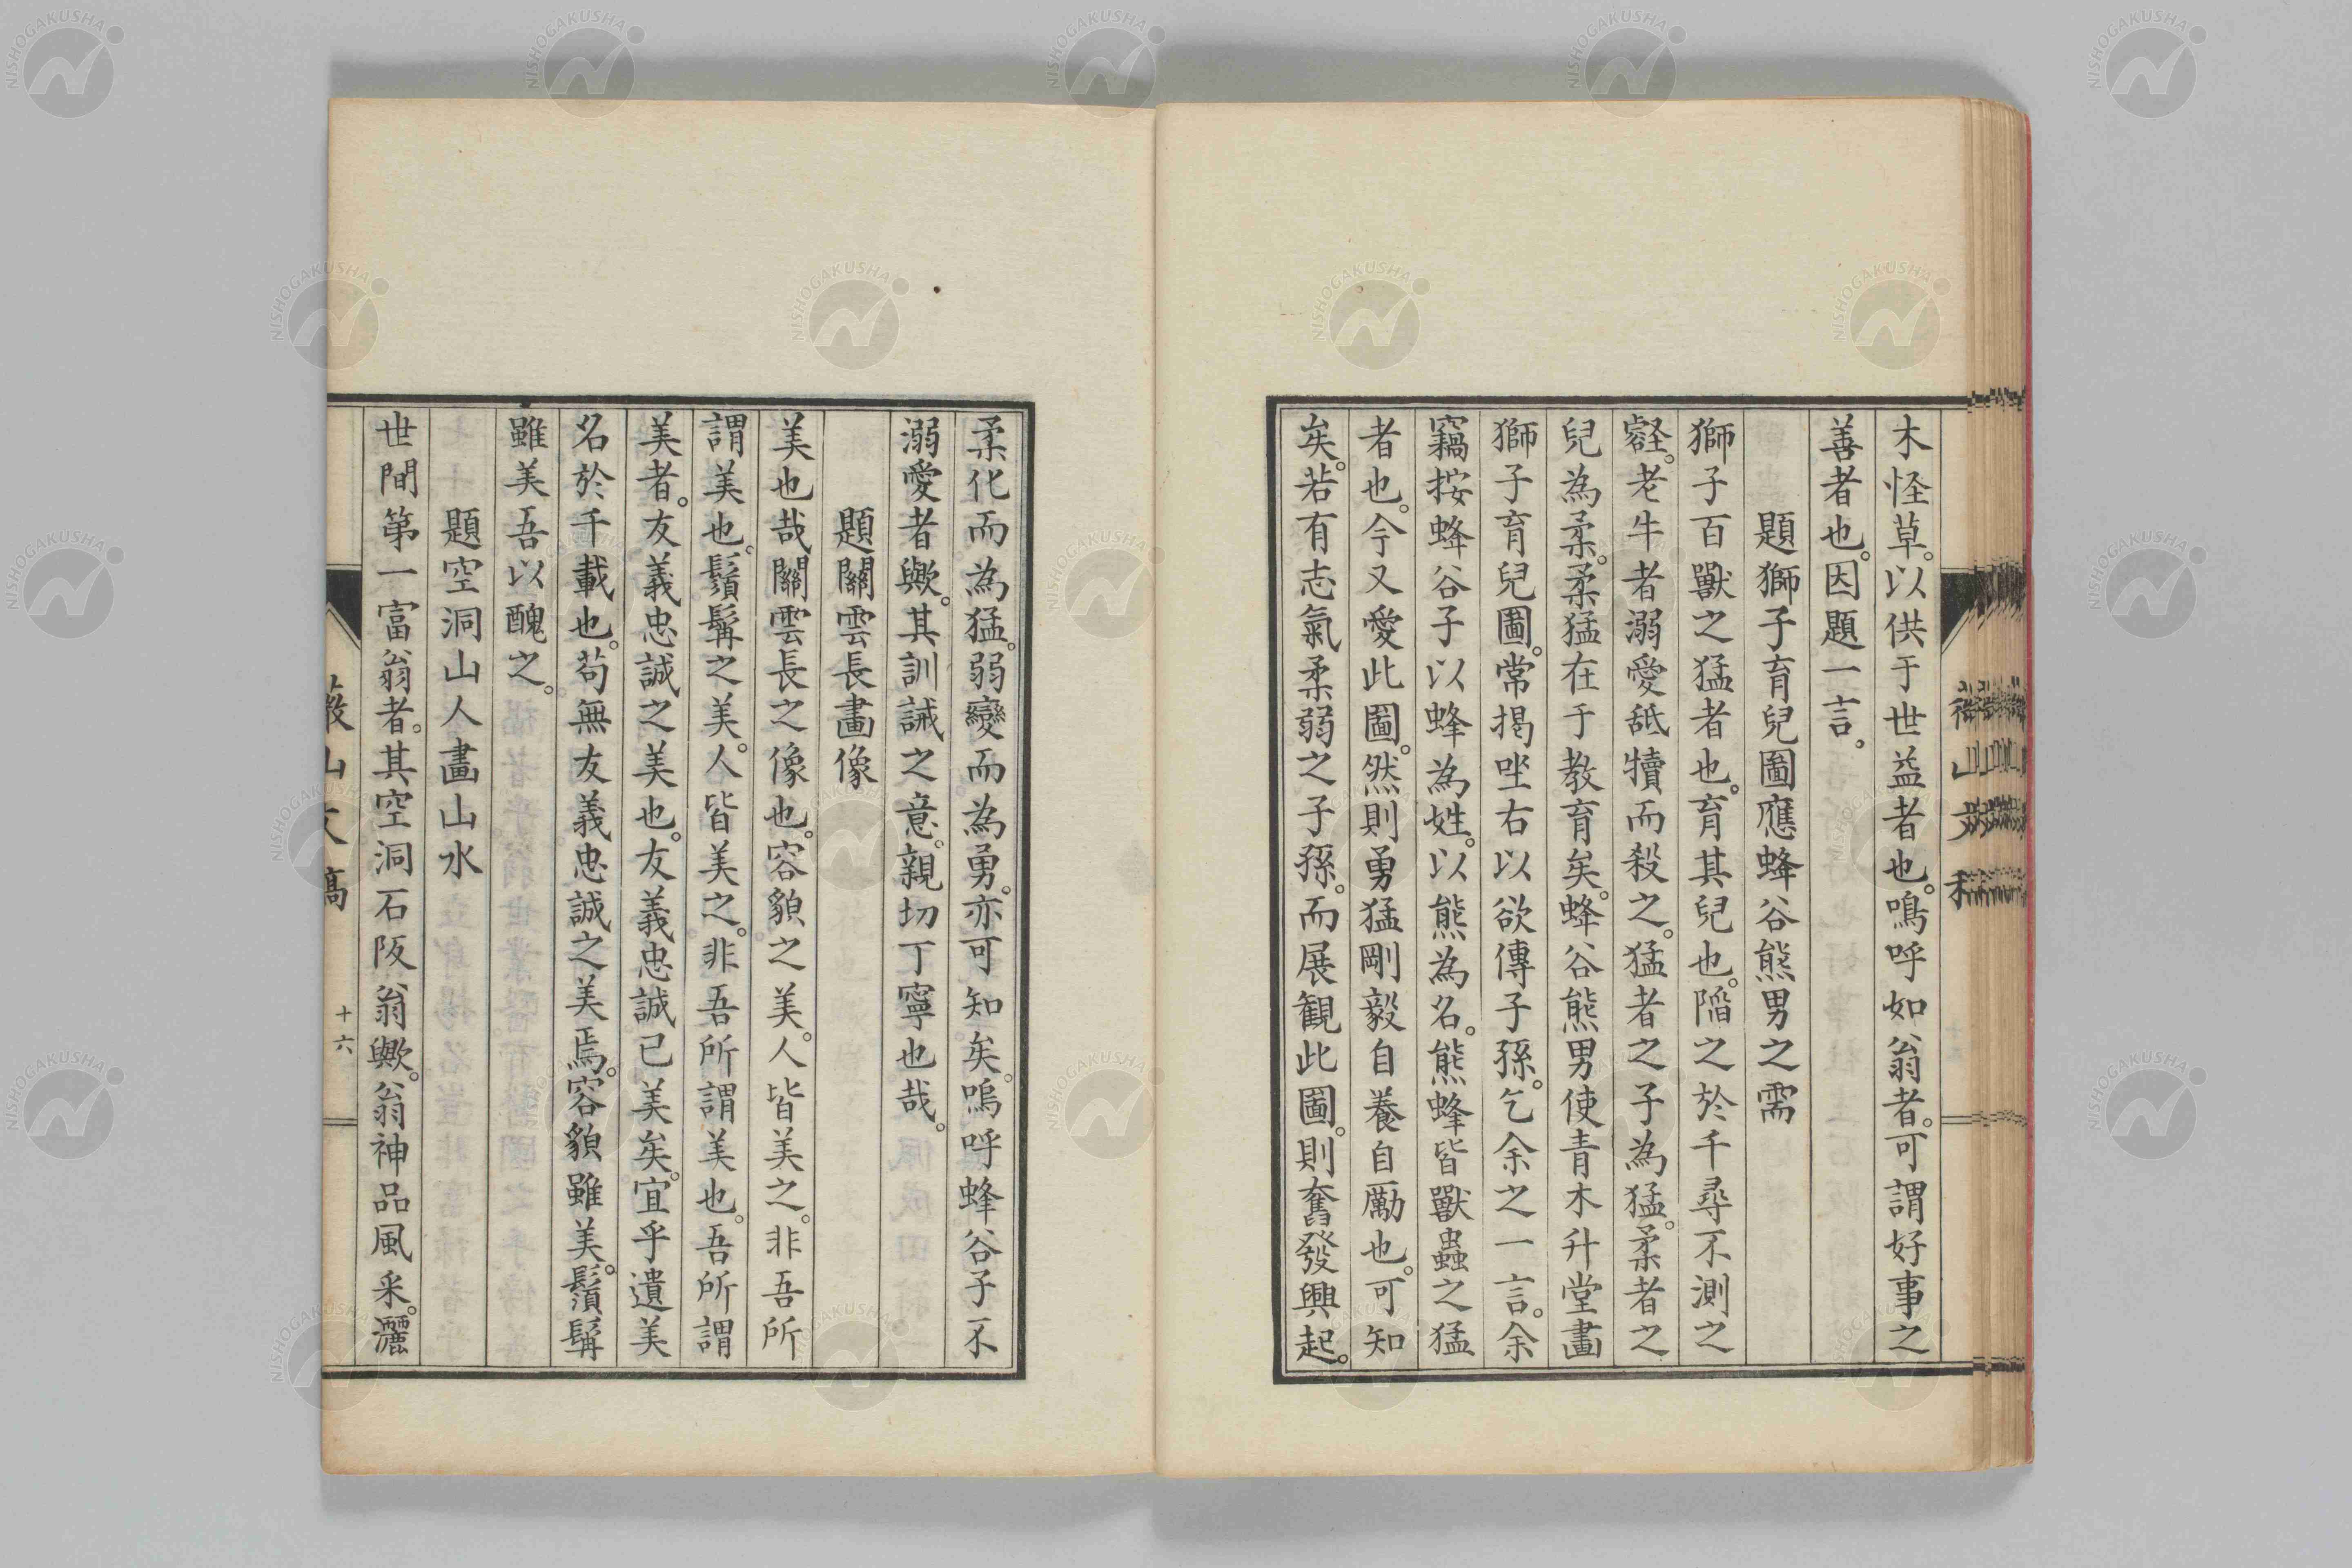 木怪草。以供于世益者也。鳴呼如翁者。可謂好事之
善者也。因題一言。
題獅子育兒圖應蜂谷熊男之需
獅子百獸之猛者也。育其兒也。陷之於千尋不測之
壑。老牛者溺愛舐犢而殺之。猛者之子為猛。柔者之
兒為柔。柔猛在于教育矣。蜂谷熊男使青木升堂畫
獅子育兒圖。常揭坐右以欲傳子孫。乞余之一言。余
竊按蜂谷子以蜂為姓。以熊為名。熊蜂皆獸蟲之猛
者也。今又愛此圖。然則勇猛剛毅自養自勵也。可知
矣。若有志氣柔弱之子孫。而展観此圖。則奮發興起。
柔化而為猛。弱變而為勇。亦可知矣。嗚呼蜂谷子不
溺愛者歟。其訓誡之意。親切丁寧也哉。
題關雲長畫像
美也哉關雲長之像也。容貌之美。人皆美之。非吾所
謂美也。鬚髯之美。人皆美之。非吾所謂美也。吾所謂
美者。友義忠誠之美也。友義忠誠已美矣。宜乎遺美
名於千載也。苟無友義忠誠之美焉。容貌雖美。鬚髯
雖美吾以醜之。
題空洞山人畫山水
世間第一富翁者。其空洞石阪翁歟。翁神品風采。灑
山文稿
十六
NISHOGAKUSHA